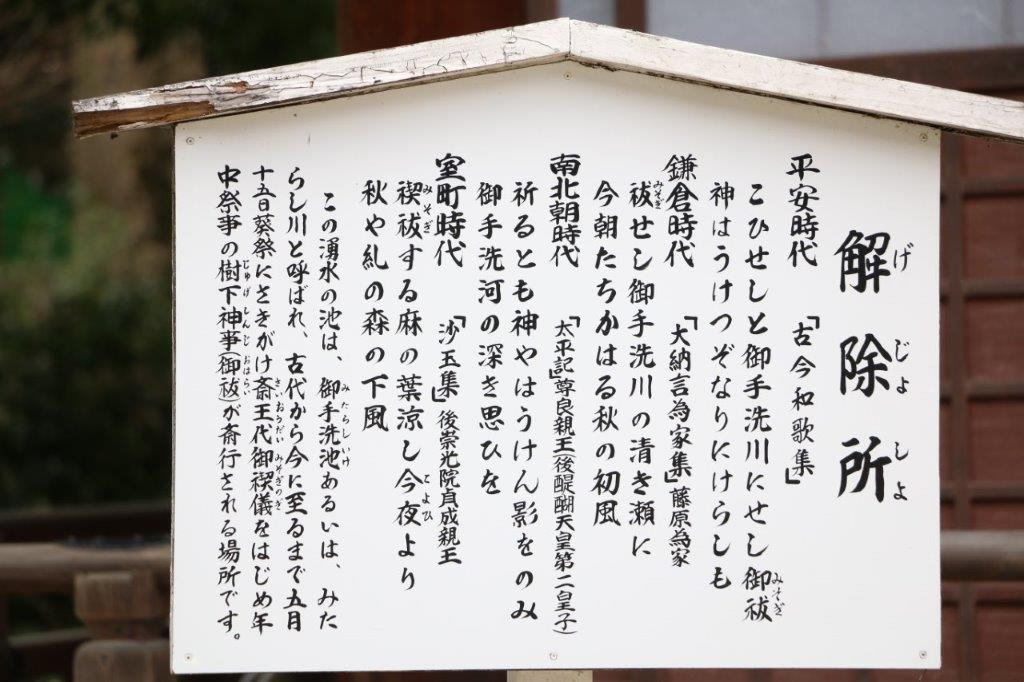 解除所
げじょしょ
平安時代 「古今和歌集」
こひせしと御手洗川にせし御祓
みそぎ
神はうけつぞなりにけらしも
鎌倉時代 「大納言為家集」藤原為家
祓せし御手洗川の清き瀬に
みそぎ
今朝たちかはる秋の初風
南北朝時代 「太平記」尊良親王(後醍醐天皇第二皇子)
祈るとも神やはうけん影をのみ
御手洗河の深き思ひを
室町時代 「沙玉集」後崇光院貞成親王
禊祓する麻の葉涼し今夜より
みそぎ こよひ
秋や糺の森の下風
この湧水の池は、御手洗池あるいは、みた
みたらしいけ
らし川と呼ばれ、古代から今に至るまで五月
十五日葵祭にさきがけ斎王代御禊儀をはじめ年
さいおうだいみそぎのぎ
中祭事の樹下神事(御祓)が斎行される場所です。
じゅげしんじ おはらい